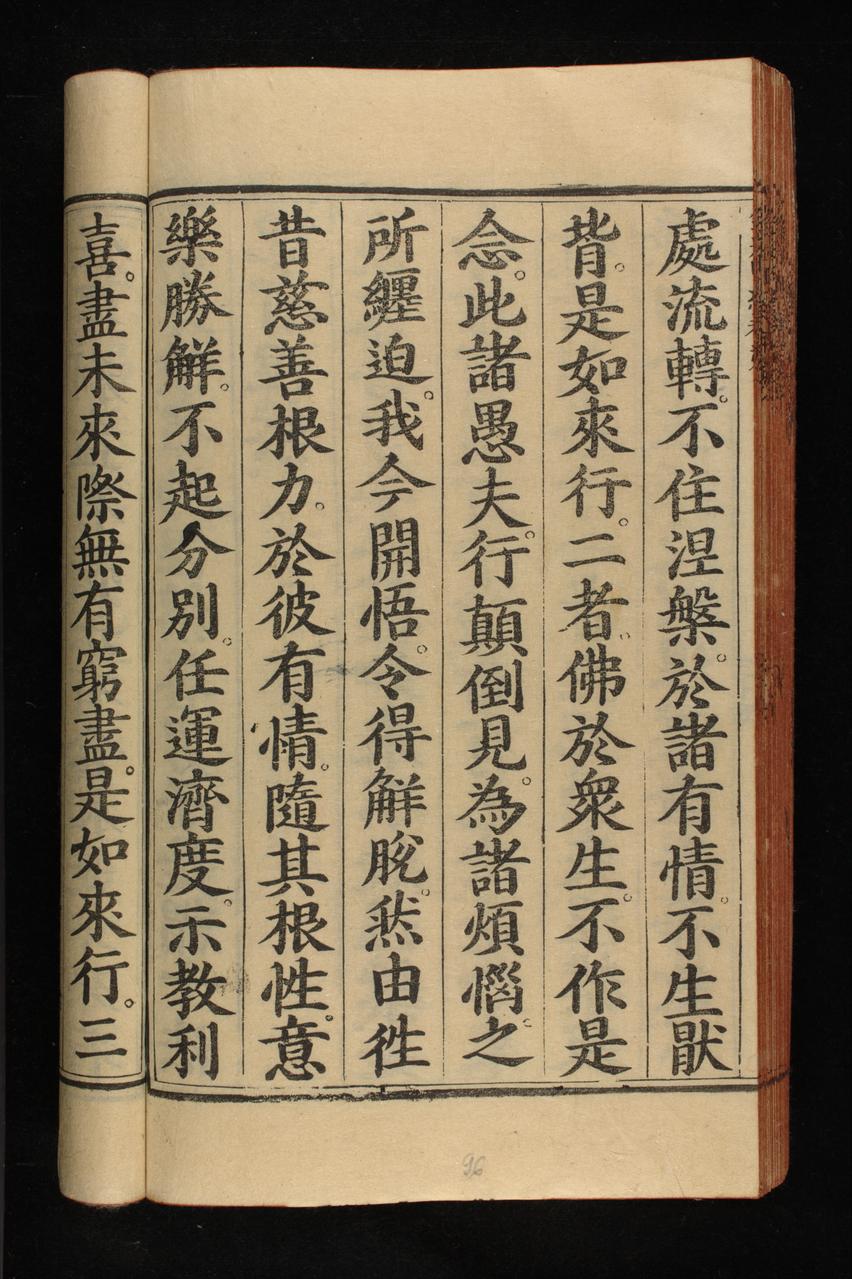 處流轉。不住涅槃。於諸有情。不生猒
背。是如來行。二者。佛於衆生。不作是
念。此諸愚夫。行顛倒見。為諸煩惱。之
所纏迫。我今開悟。令得解脫。㷊由徃
昔慈善根力。於彼有情。隨其根性。意
樂勝解。不起分別。任運濟度。示教利
喜。盡未來際無有窮盡。是如來行。三
96